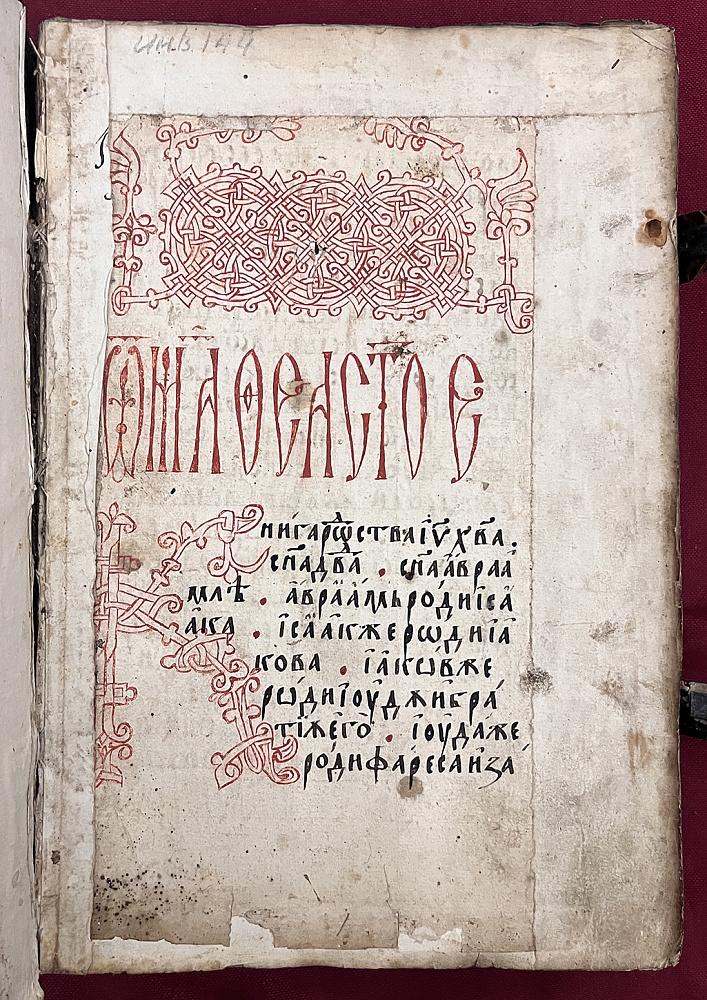 инв. 144
Ѿ маⷴѳеа ст҃ое
Книга рѡⷤства іѵ хв҃а.
сн҃а дв҃да . сн҃а авраа
млѣ . авраамь роди іса
ака . ісаак же рѡди іа
кова . іакѡв же
рѡди іоуд и бра
тіѧ его . іоуда же
роди фареса и за